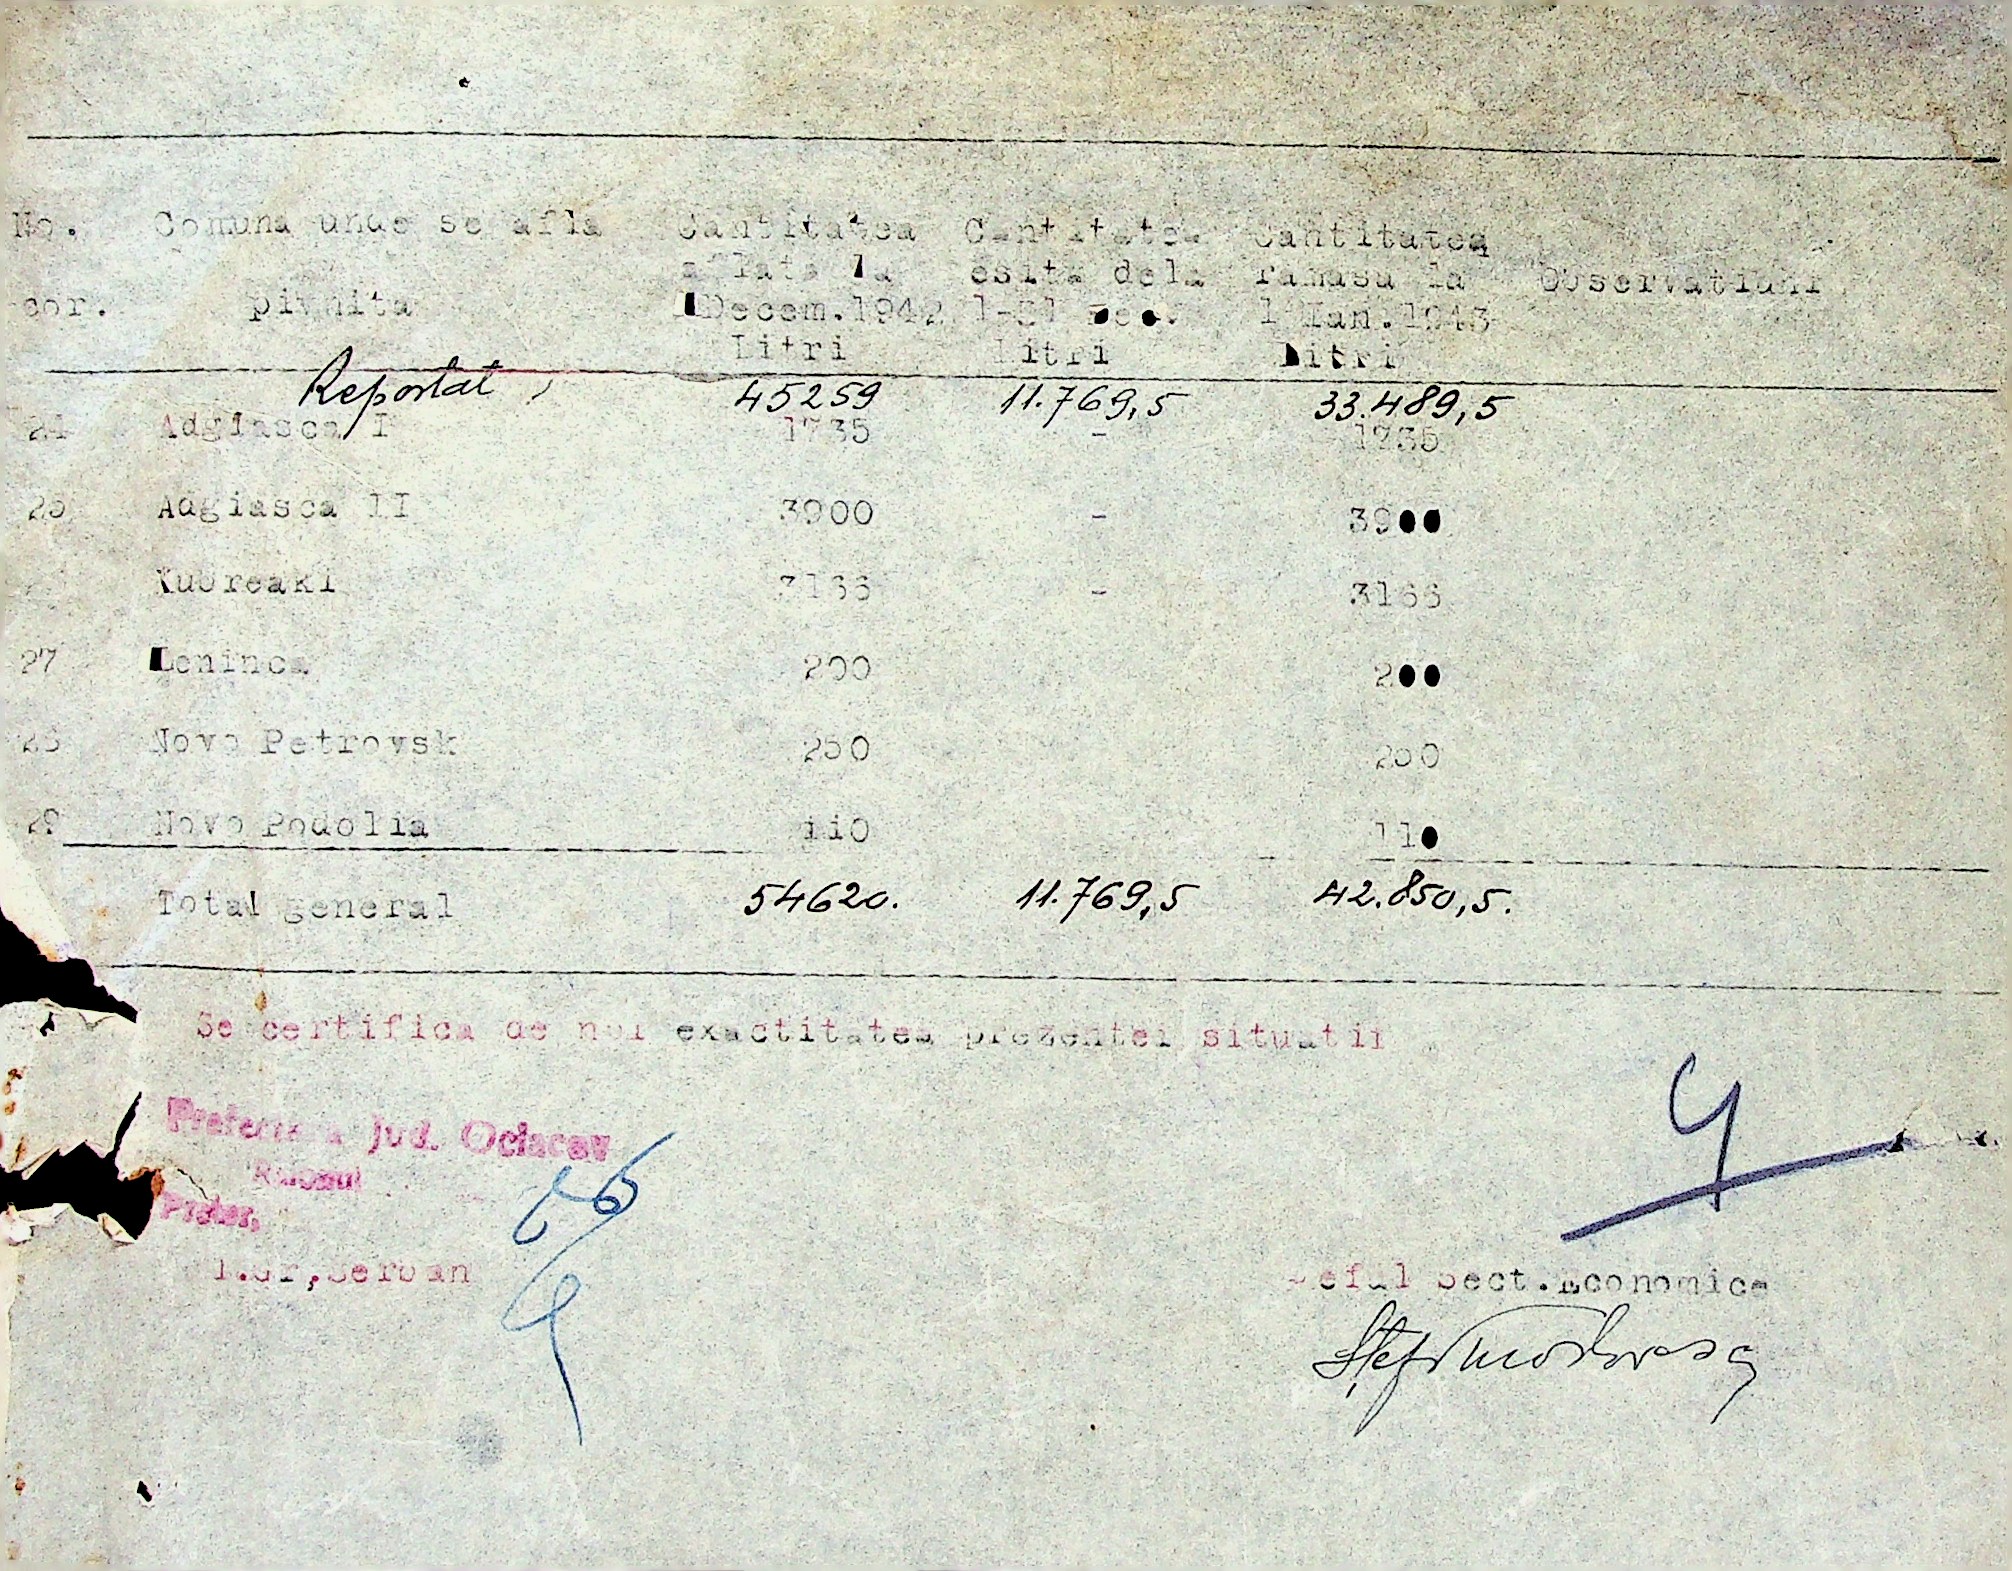 No. Comuna unde se afla Cantitatea Cantitatea Cantitatea
aflata la esita dela ramasa la Observatiuni
cor. pivnita 1 Decem.1942 1-31 Dec. 1 Ian.1943
Litri Litri Litri
Reportat 45259 11.769,5 33.489,5
24 Adgiasca I 1735 - 1735
25 Adgiasca II 3900 - 3900
Kubreaki 3166 - 3166
27 Leninca 200 200
28 Novo Petrovsk 250 250
29 Novo Podolia 110 110
Total general 54620. 11.769,5 42.850,5.
Se certifica de noi exactitatea prezentei situatii
Prefectura Jud. Ociacov
Raionul
Pretor,
I.Gr,Serban
Seful Sect.Economica